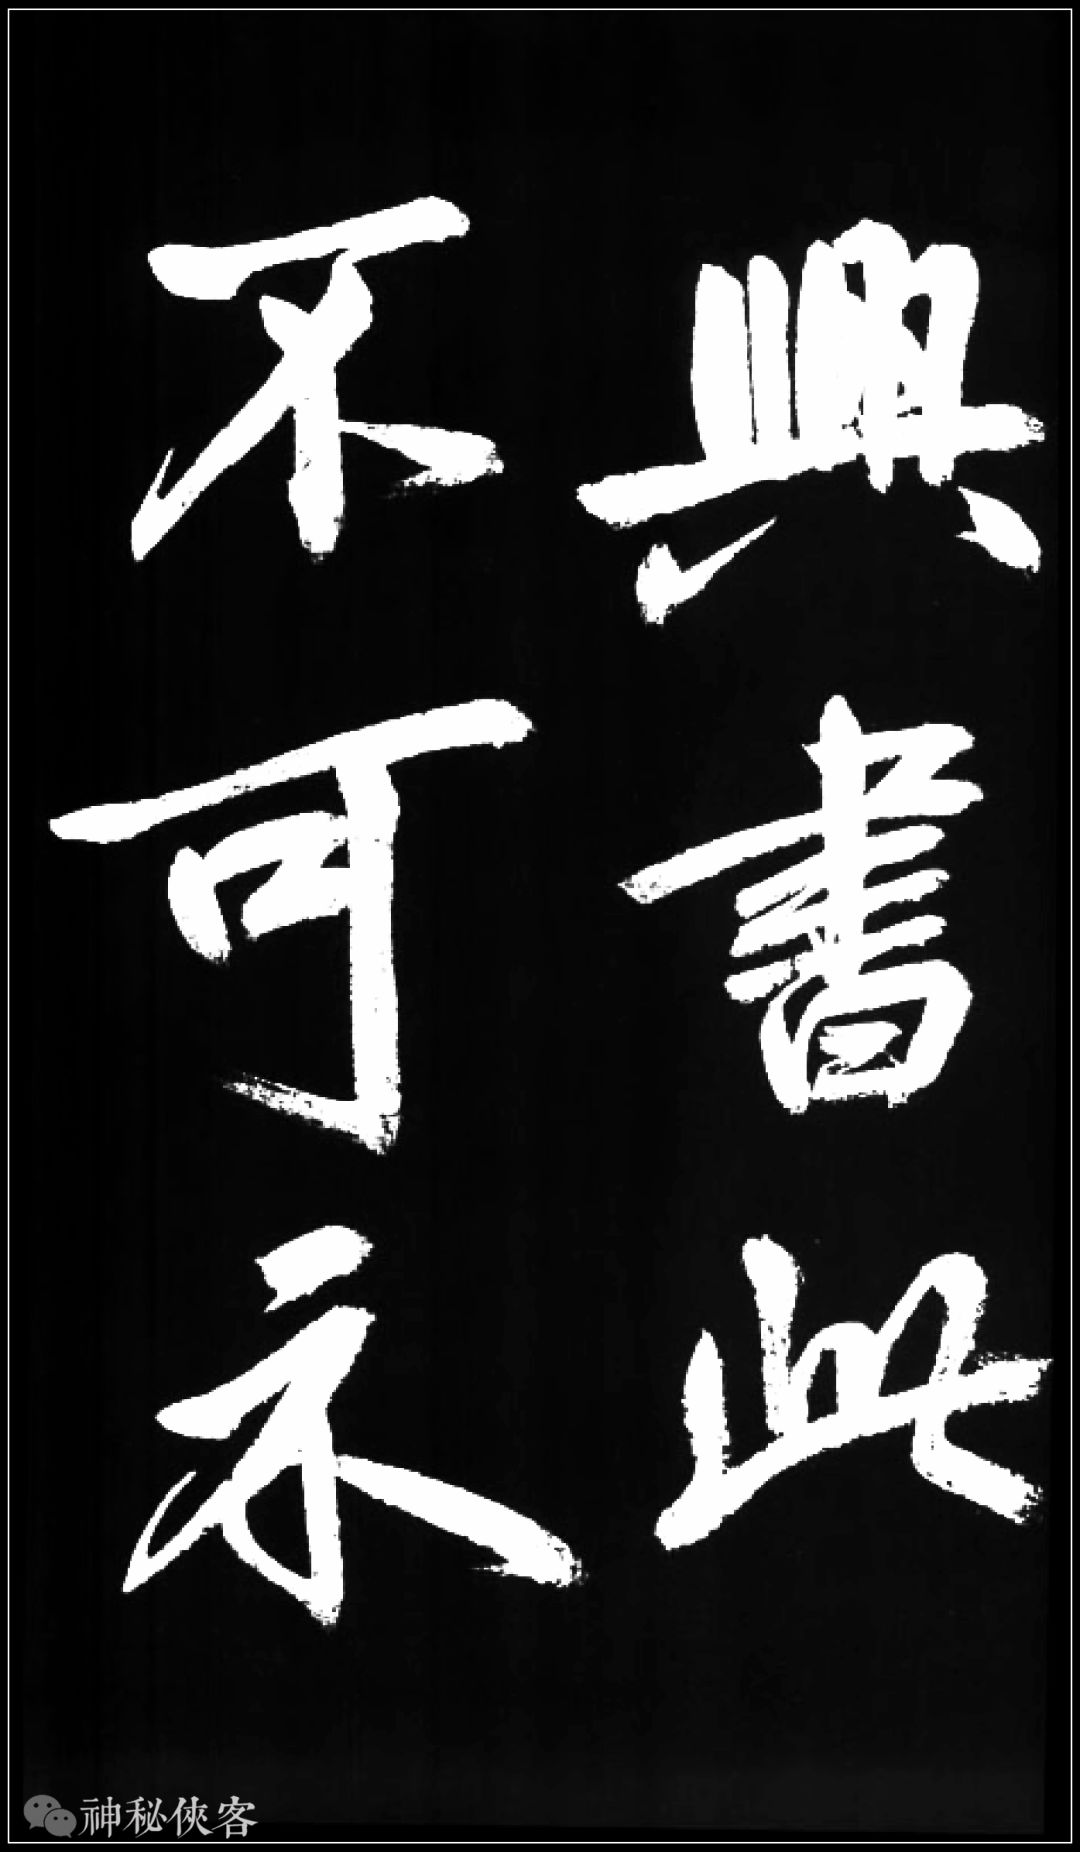 興書此
不可示
神秘俠客